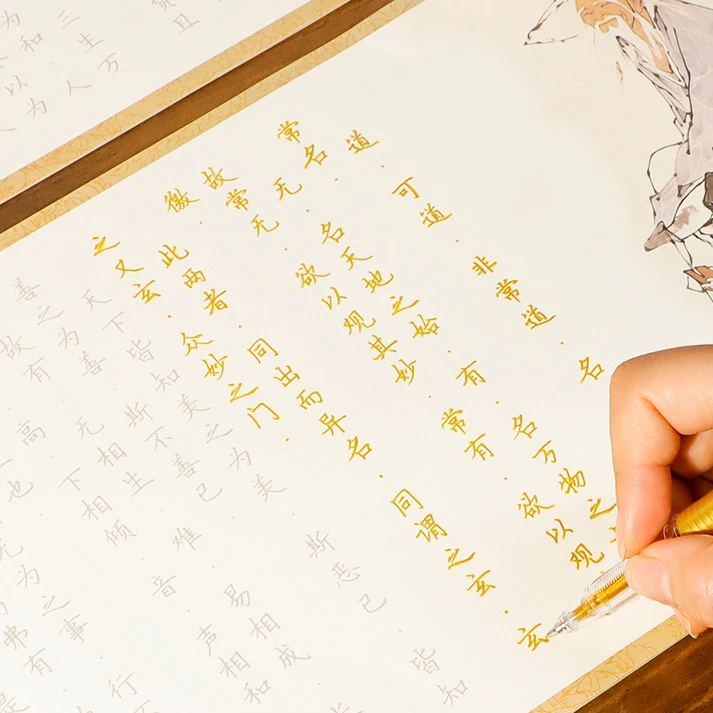 道·可道·非常道·名
常名·
无·名天地之始·有·名万物之
故常无·欲以观其妙·常有·欲以观
徼·
此两者·同出而异名·同谓之玄·玄
之又玄·众妙之门·
天下皆知美之为美·斯恶已·皆知
善之为善·斯不善已·
故有无相生·难易相成
高下相倾·音声相和
为之事·行
弗有
三生万
和
以为
人
且